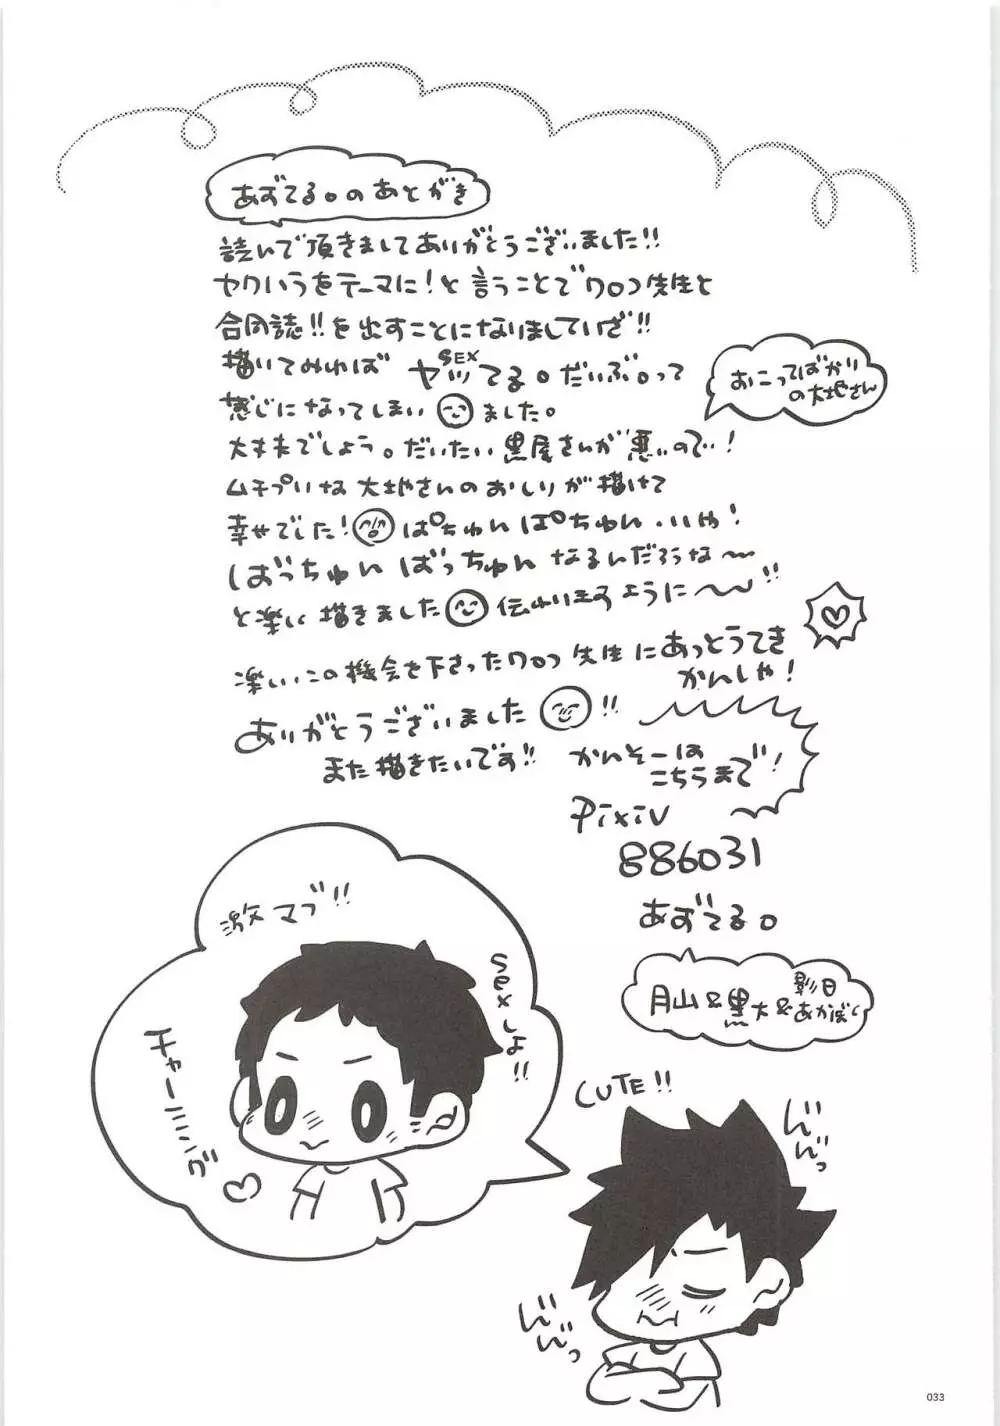 あずてる。のあとがき
読んで頂きましてありがとうございました!!
ヤクいうをテーマに!と言うことでワロコ先生と
合同誌!!を出すことになりましていざ!!
描いてみれば ヤッてる。だいぶ。って
SEX
感じになってしまいました。
おこってばかり
の大地さん
大丈夫でしょう。だいたい黒尾さんが悪いので!
ムチプリな大地さんのおしりが描けて
幸せでした!ぱちゅんぱちゅん、いや!
ばっちゅんばっちゅんなるんだろうな〜
と楽しい描きました 伝わりますように〜!!
楽しいこの機会を下さったワロコ先生にあっとうてき
かんしゃ!
ありがとうございました!!
また描きたいです!!
かんそーは
こちらまで!
Pixiv
886031
あずてる。
月山&黒大&影日
あかぼく
激マブ!!
sexしよ!!
チャーミング
CUTE!!
んんんっ
んんんっ
033